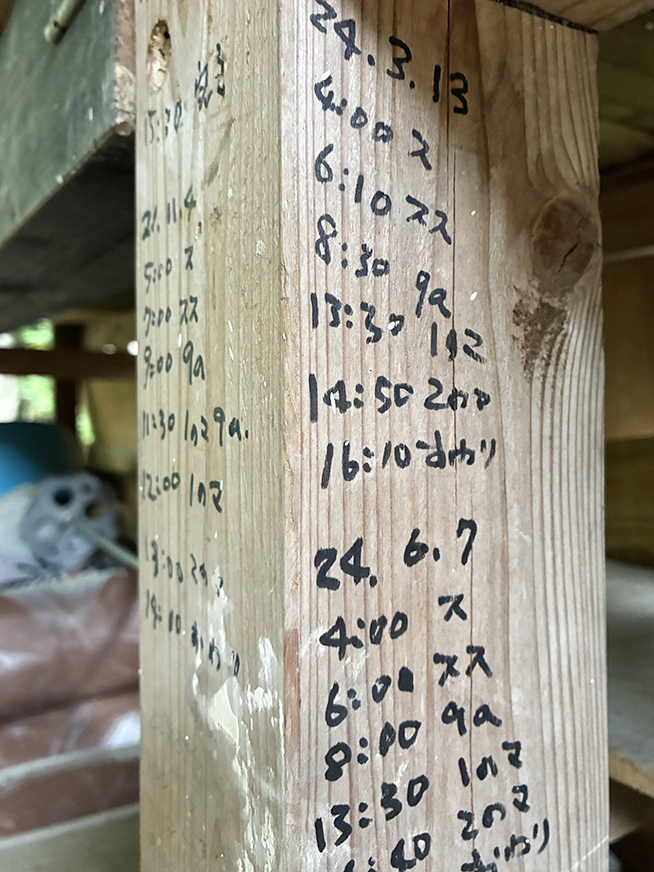 15:30
21.11.4
5:00 ス
7:00 スス
9:00 9a
11:30 1のマ 9a.
12:00 1のマ
13:00 2の
14:10 おわり
24.3.13
4:00 ス
6:10 スス
8:30 9a
13:30 1のマ
14:50 2のマ
16:10 おわり
24.6.7
4:00 ス
6:00 スス
8:00 9a
13:30 1のマ
2のマ
:40 おわり